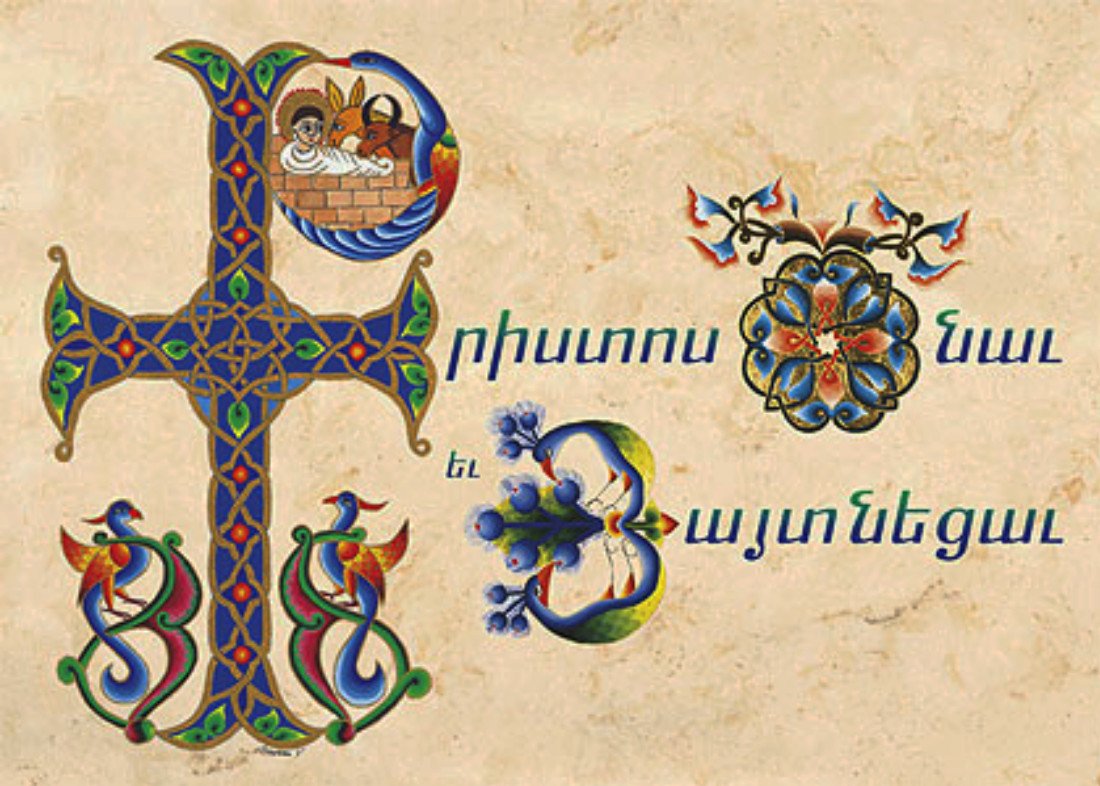 Քրիստոս Ծնաւ
եւ Յայտնեցաւ